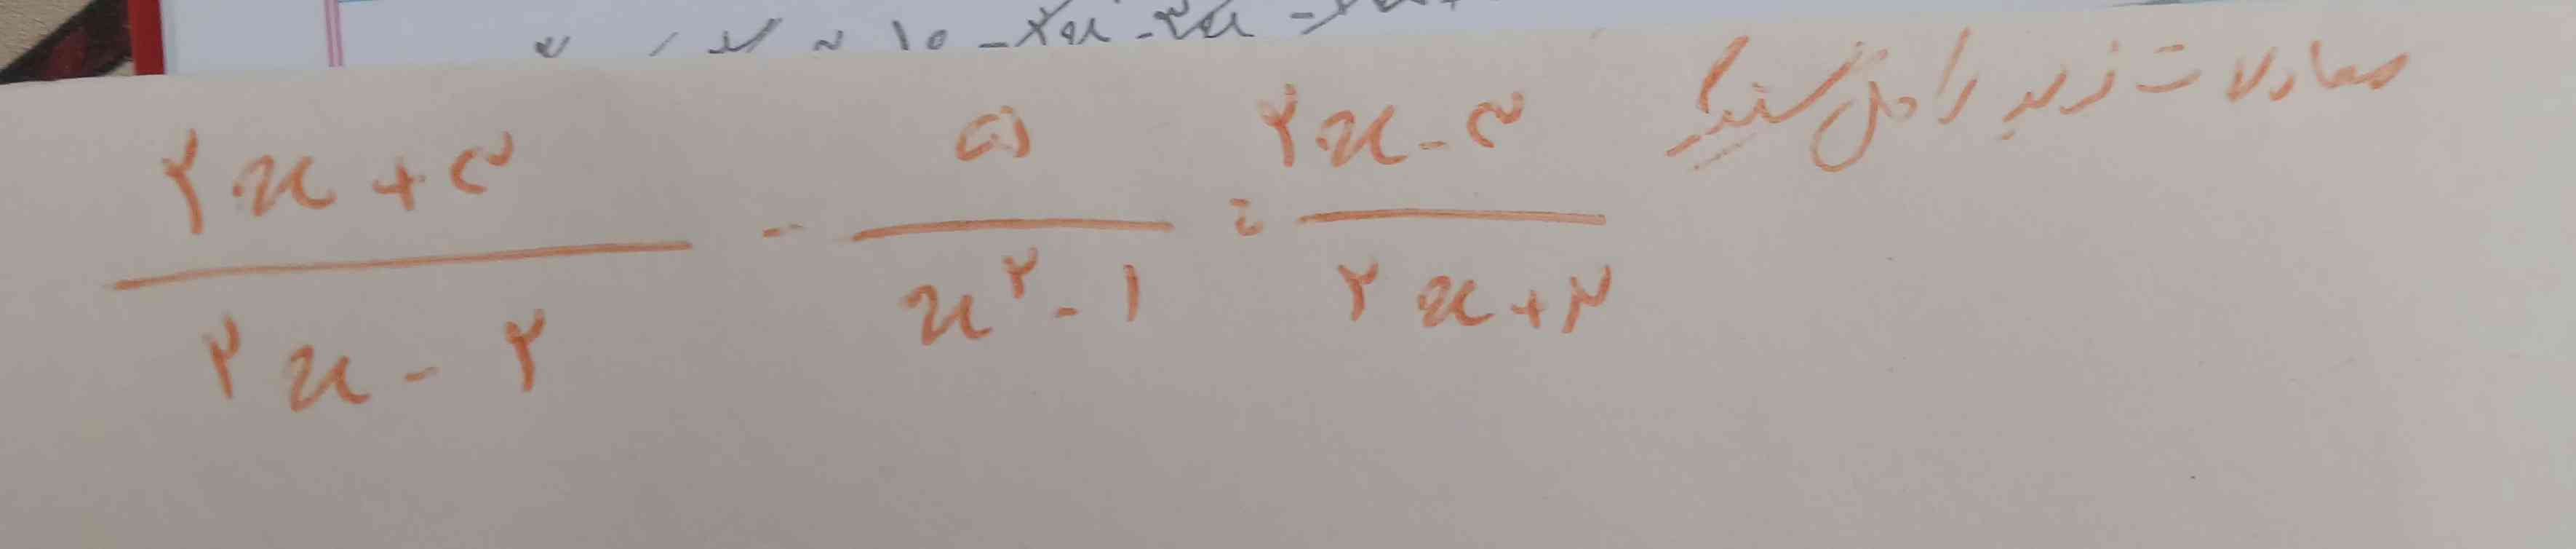 معادلات زیر را حل کنید؟
۲x + ۳ / ۲x - ۲ - ۵ / x^۲ - ۱ = ۲x - ۳ / ۲x + ۲